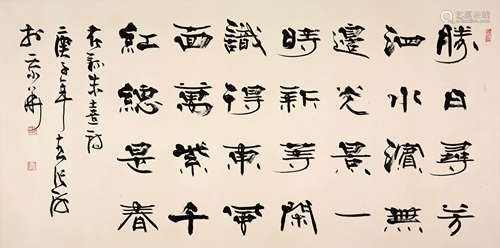 勝日尋芳
泗水濱無
邊光景一
時新等閑
識得東風
面萬紫千
紅總是春
朱熹詩
庚子年
於京華